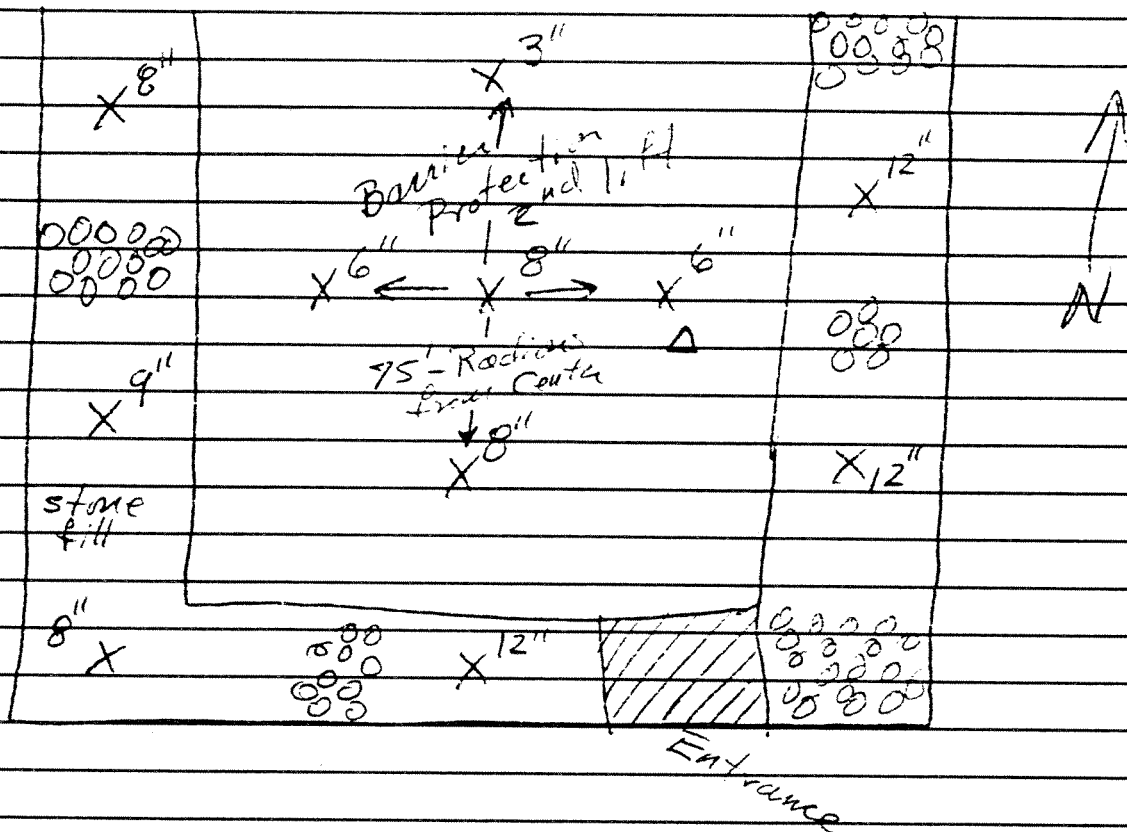 8" X
X 3"
Barrier
Protection
2nd lift
X 12"
X 6"
X 8"
X 6"
N
75'-Radius
from Center
X 9"
X 8"
X 12"
stone
fill
8" X
X 12"
Entrance